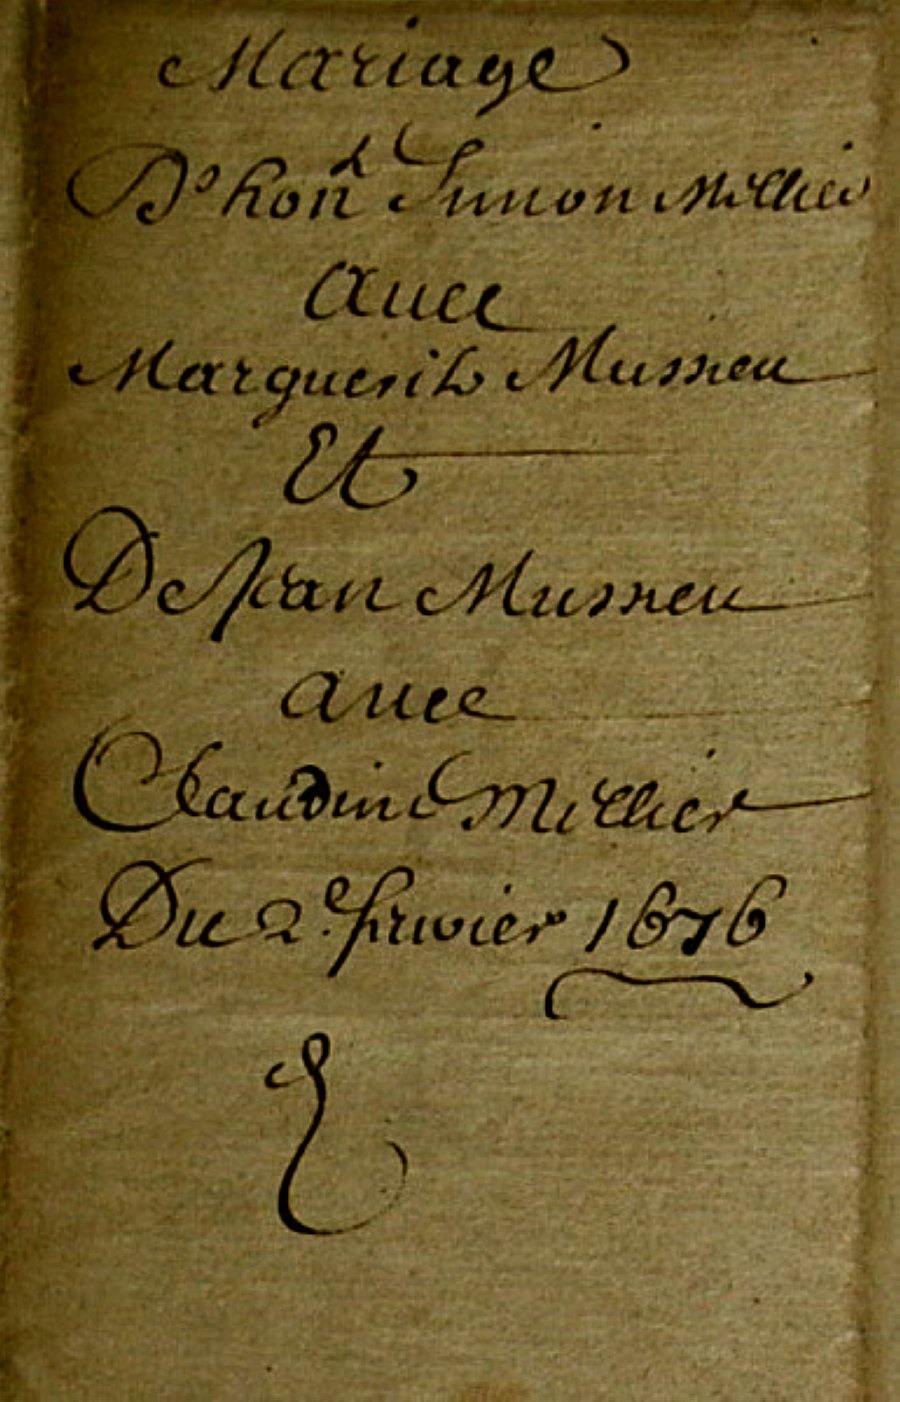 Mariage
De hond Simon Millier
auec
Marguerite Mussieu
Et
De Jean Mussieu
auec
Claudine Millier
Du 2e feruier 1676